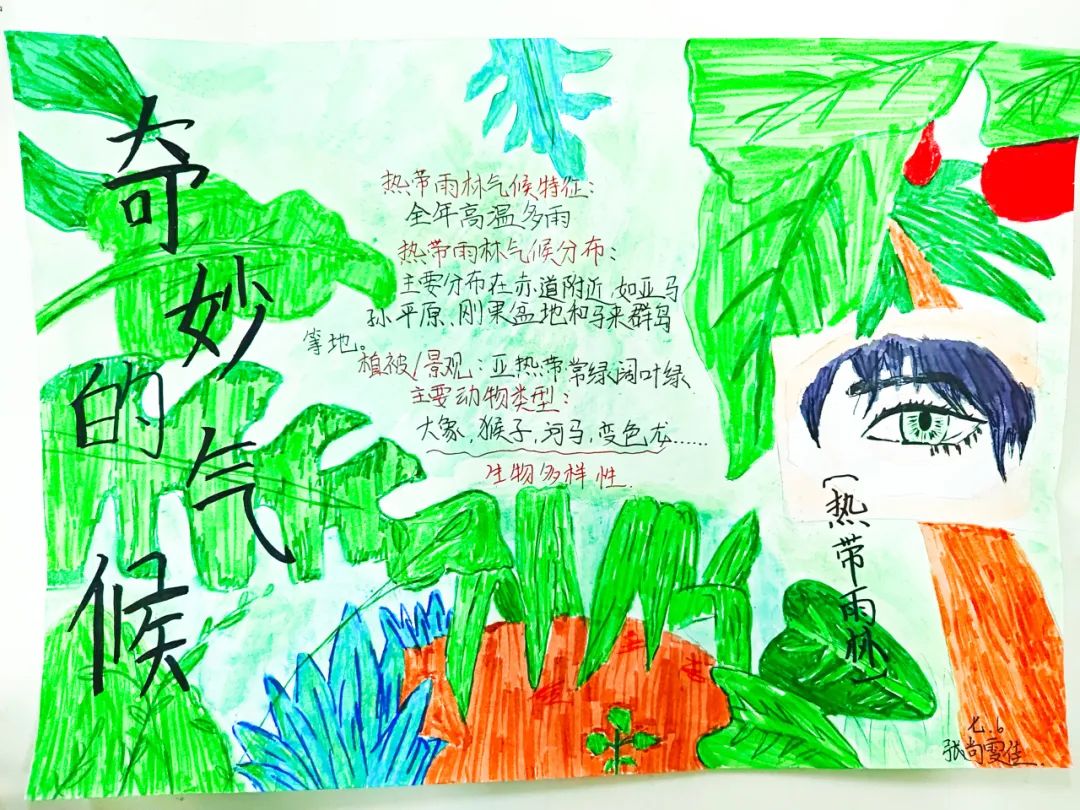 奇妙的气候
热带雨林气候特征：
全年高温多雨
热带雨林气候分布：
主要分布在赤道附近，如亚马
孙平原、刚果盆地和马来群岛
等地。
植被/景观：亚热带常绿阔叶绿
主要动物类型：
大象，猴子，河马，变色龙……
生物多样性.
〔热带雨林〕
七.6
张尚雯佳